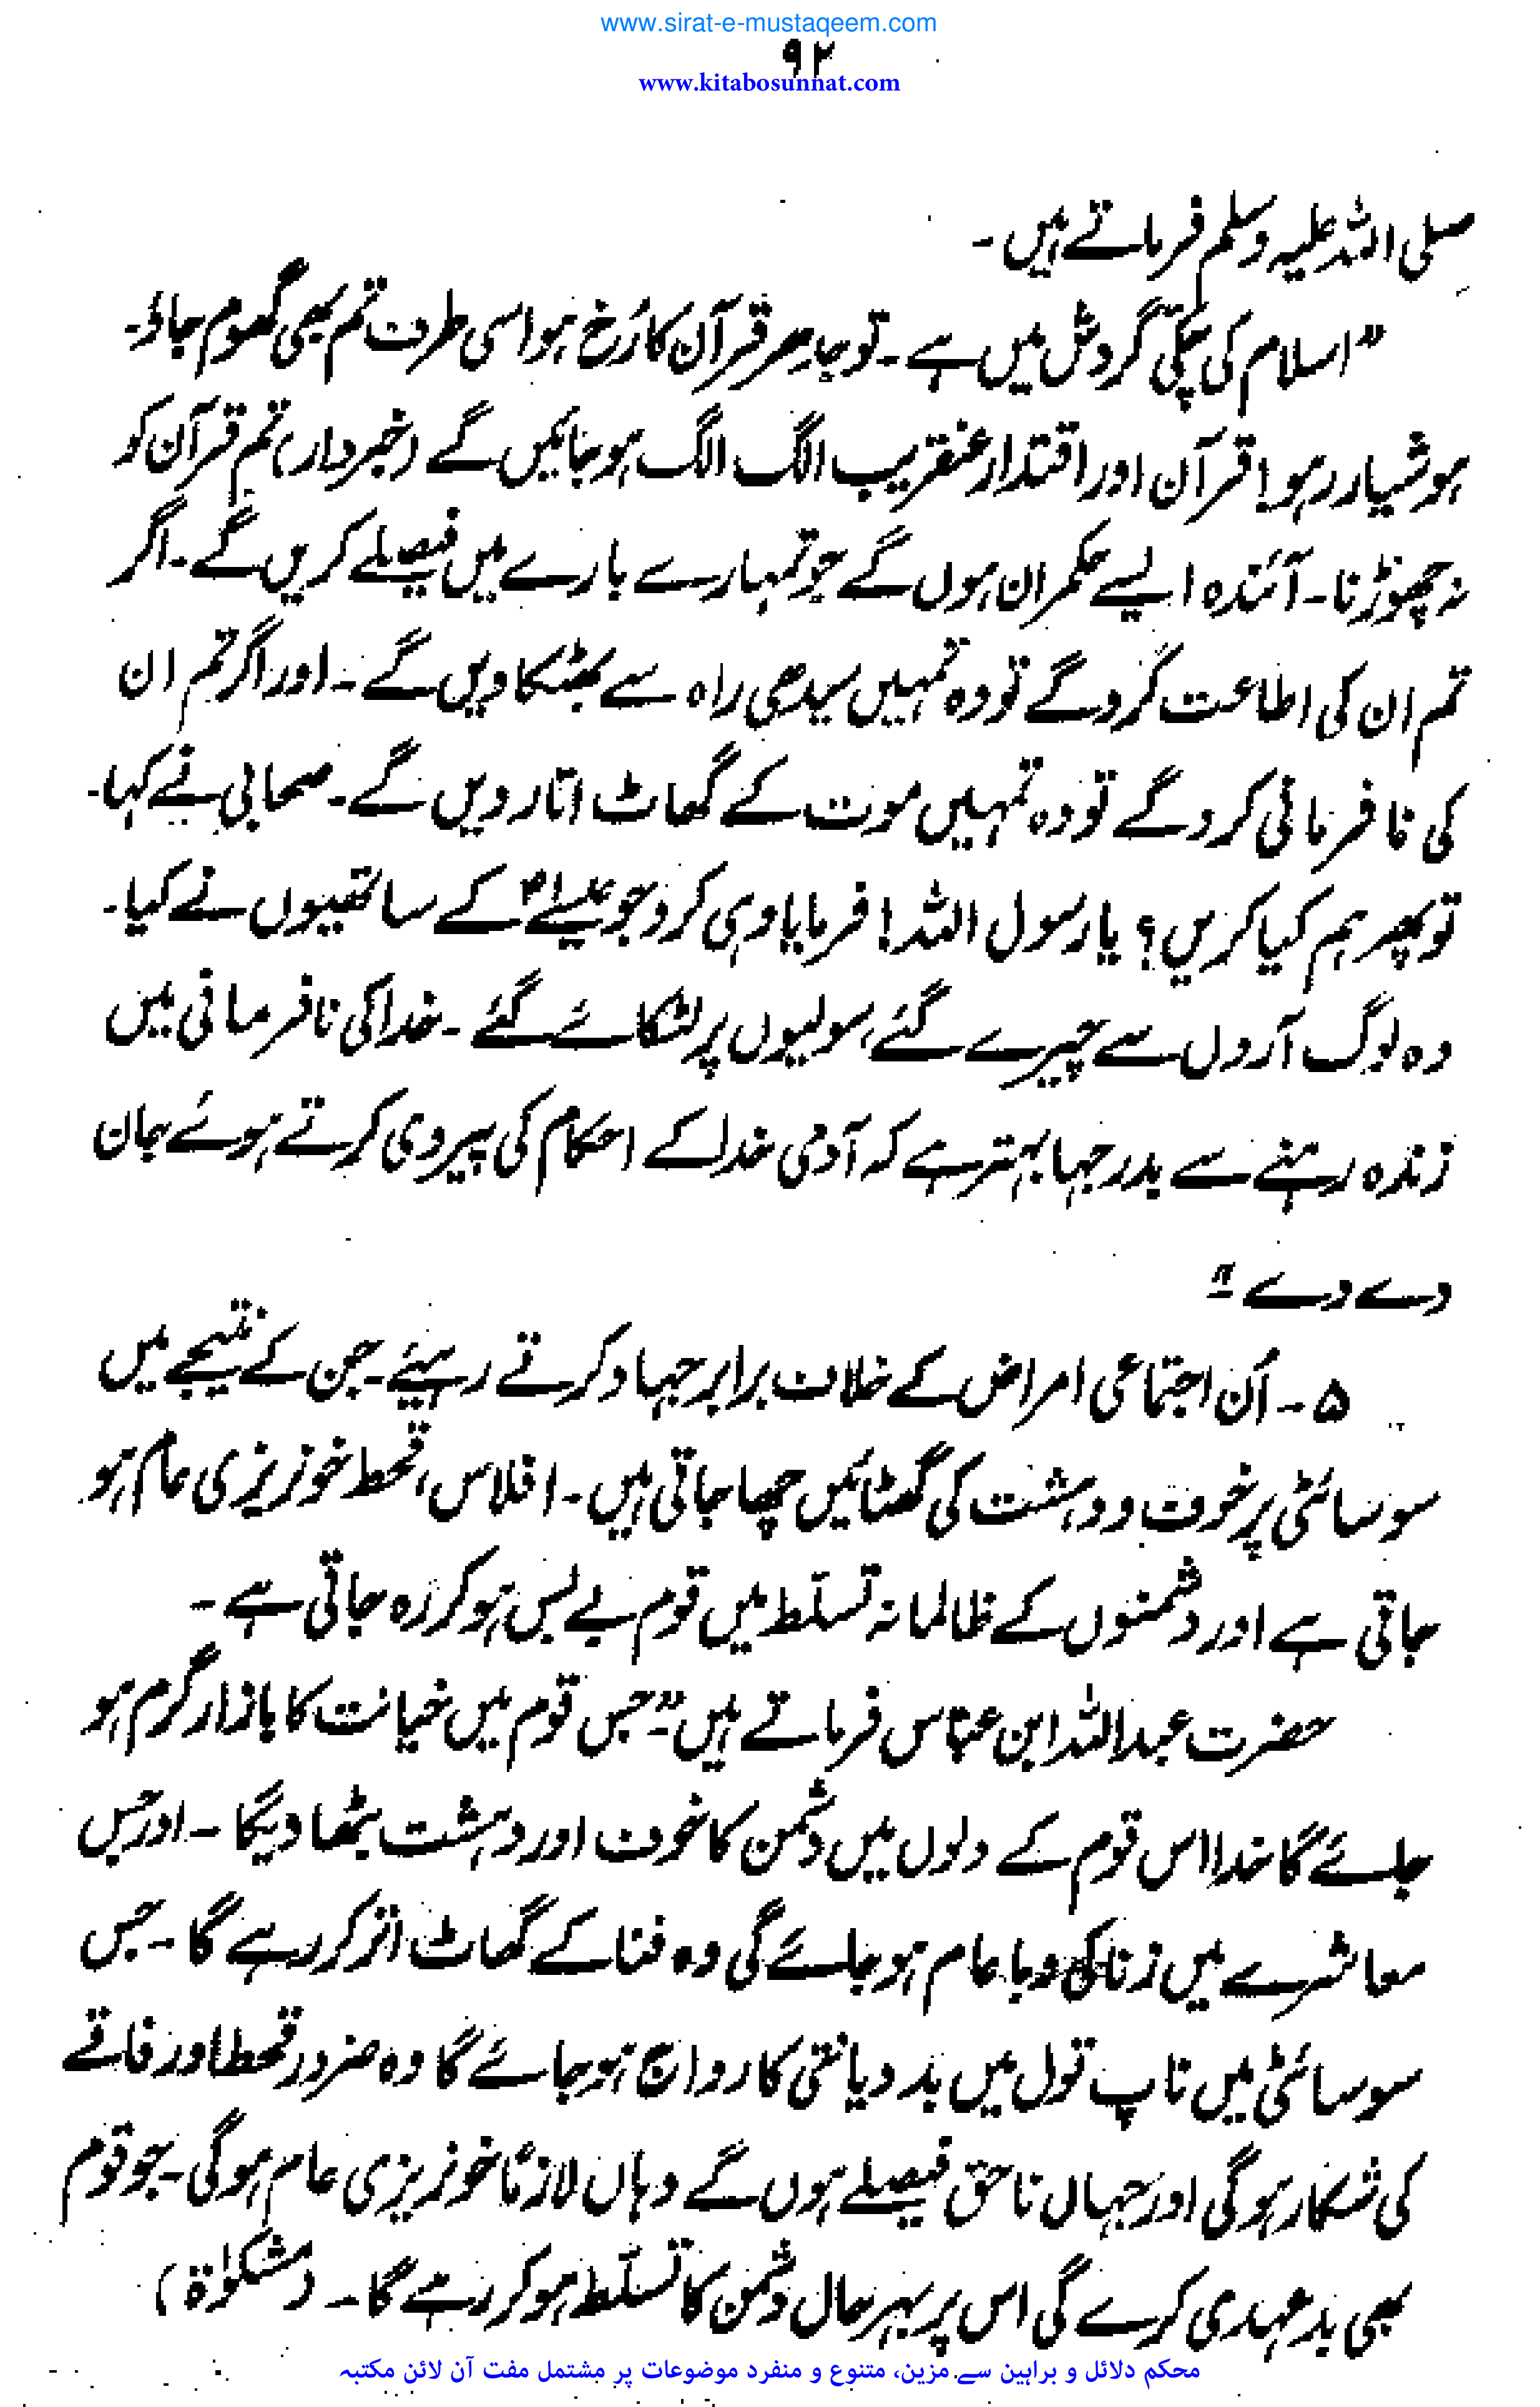 www.sirat-e-mustaqeem.com
۹۲
www.kitabosunnat.com
صلی اللہ علیہ وسلم فرماتے ہیں ۔
”اسلام کی چکّی گردش میں ہے ۔ تو جدھر قرآن کا رُخ ہو اسی طرف تم بھی گھوم جاؤ ۔
ہوشیار رہو! قرآن اور اقتدار عنقریب الگ الگ ہو جائیں گے (خبردار) تم قرآن کو
نہ چھوڑنا ۔ آئندہ ایسے حکمران ہوں گے جو تمہارے بارے میں فیصلے کریں گے ۔ اگر
تم ان کی اطاعت کرو گے تو وہ تمہیں سیدھی راہ سے بھٹکا دیں گے ۔ اور اگر تم ان
کی نافرمانی کرو گے تو وہ تمہیں موت کے گھاٹ اتار دیں گے ۔ صحابی نے کہا ۔
تو پھر ہم کیا کریں؟ یا رسول اللہ! فرمایا وہی کرو جو عیسٰےؑ کے ساتھیوں نے کیا ۔
وہ لوگ آروں سے چیرے گئے، سولیوں پر لٹکائے گئے ۔ خدا کی نافرمانی میں
زندہ رہنے سے بدرجہا بہتر ہے کہ آدمی خدا کے احکام کی پیروی کرتے ہوئے جان
دے دے ۔“
۵ ۔ اُن اجتماعی امراض کے خلاف برابر جہاد کرتے رہیئے ۔ جن کے نتیجے میں
سوسائٹی پر خوف و دہشت کی گھٹائیں چھا جاتی ہیں ۔ افلاس، قحط خونریزی عام ہو
جاتی ہے اور دشمنوں کے ظالمانہ تسلّط میں قوم بے بس ہو کر رہ جاتی ہے ۔
حضرت عبداللہ ابن عبّاس فرماتے ہیں ۔ ”جس قوم میں خیانت کا بازار گرم ہو
جائے گا خدا اس قوم کے دلوں میں دشمن کا خوف اور دہشت بٹھا دیگا ۔ اور جس
معاشرے میں زنا کی وبا عام ہو جائے گی وہ فنا کے گھاٹ اتر کر رہے گا ۔ جس
سوسائٹی میں ناپ تول میں بددیانتی کا رواج ہو جائے گا وہ ضرور قحط اور فاقے
کی شکار ہوگی اور جہاں ناحق فیصلے ہوں گے وہاں لازمًا خونریزی عام ہوگی ۔ جو قوم
بھی بدعہدی کرے گی اس پر بہرحال دشمن کا تسلّط ہو کر رہے گا ۔ (مشکوٰۃ)
محکم دلائل و براہین سے مزین، متنوع و منفرد موضوعات پر مشتمل مفت آن لائن مکتبہ